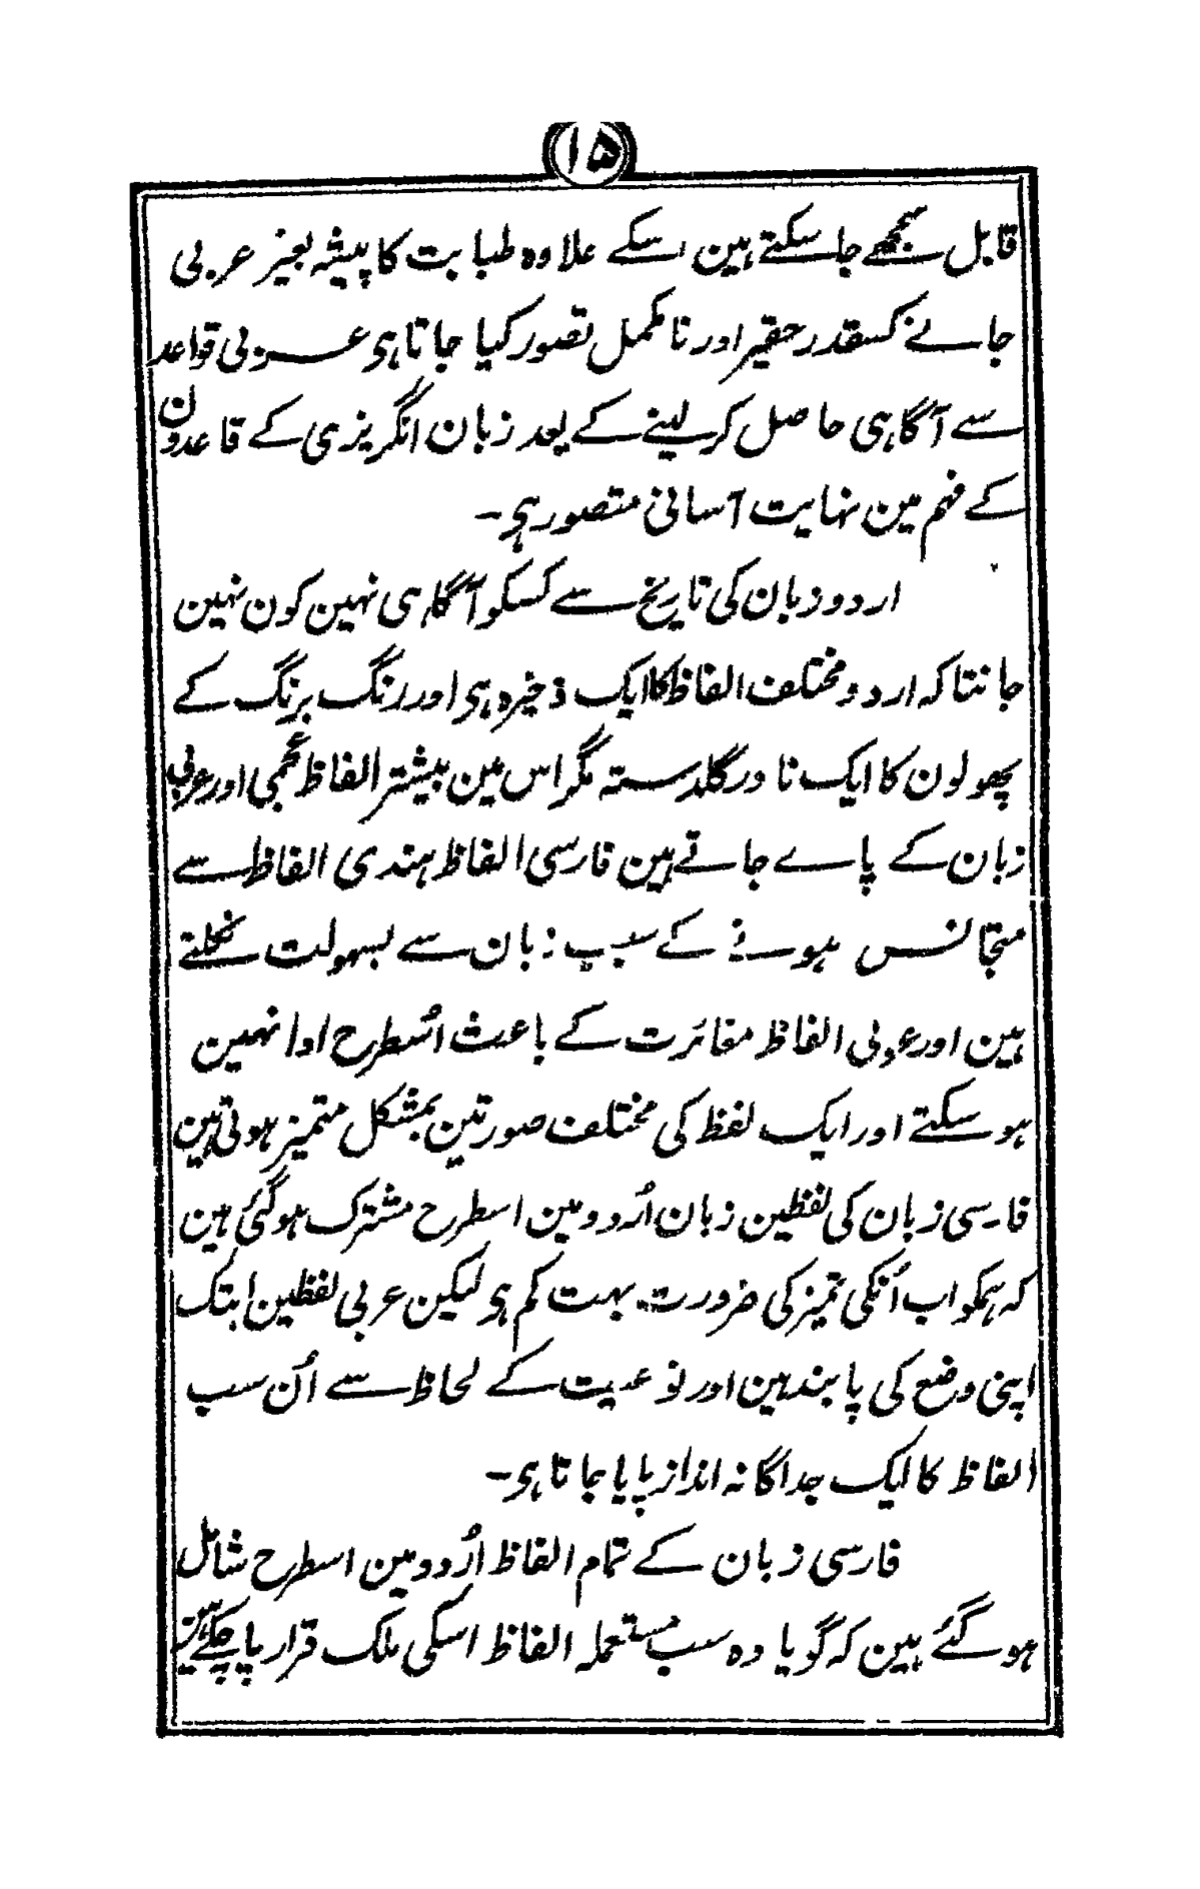 ۱۵
قابل سمجھے جا سکتے ہین اسکے علاوہ طبابت کا پیشہ بغیر عربی
جانے کسقدر حقیر اور نا مکمل تصور کیا جاتا ہی عربی قواعد
سے آگاہی حاصل کر لینے کے بعد زبان انگریزی کے قاعدون
کے فہم مین نہایت آسانی متصور ہی۔
اردو زبان کی تاریخ سے کسکو آگاہی نہین کون نہین
جانتا کہ اردو مختلف الفاظ کا ایک ذخیرہ ہی اور رنگ برنگ کے
پھولون کا ایک نادر گلدستہ مگر اس مین بیشتر الفاظ عجمی اور عربی
زبان کے پاے جاتے ہین فارسی الفاظ ہندی الفاظ سے
متجانس ہونے کے سبب زبان سے بسہولت نکلتے
ہین اور عربی الفاظ مغائرت کے باعث اُسطرح ادا نہین
ہو سکتے اور ایک لفظ کی مختلف صورتین بمشکل متمیز ہوتی ہین
فارسی زبان کی لفظین زبان اُردو مین اسطرح مشترک ہوگئی ہین
کہ ہمکو اب اُنکی تمیز کی ضرورت بہت کم ہی لیکن عربی لفظین ابتک
اپنی وضع کی پابند ہین اور نوعیت کے لحاظ سے اُن سب
الفاظ کا ایک جداگانہ انداز پایا جاتا ہی۔
فارسی زبان کے تمام الفاظ اُردو مین اسطرح شامل
ہو گئے ہین کہ گویا وہ سب مستعملہ الفاظ اسکی ملک قرار پا چکے ہین